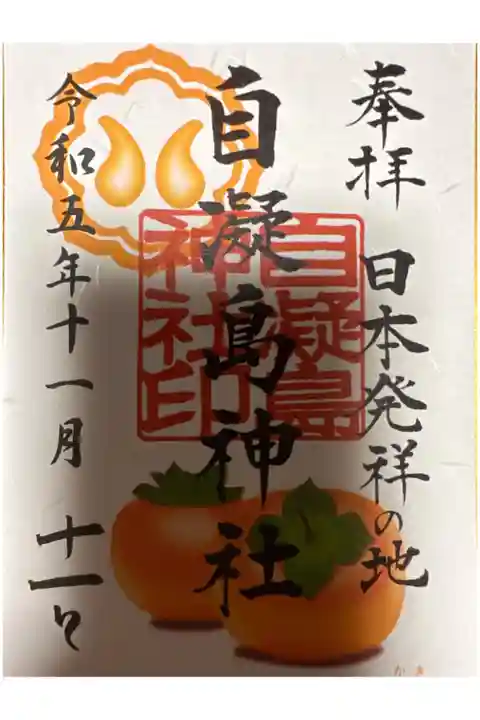 奉拝
日本発祥の地
自凝島神社
自凝島
神社印
令和五年十一月十一日
かき